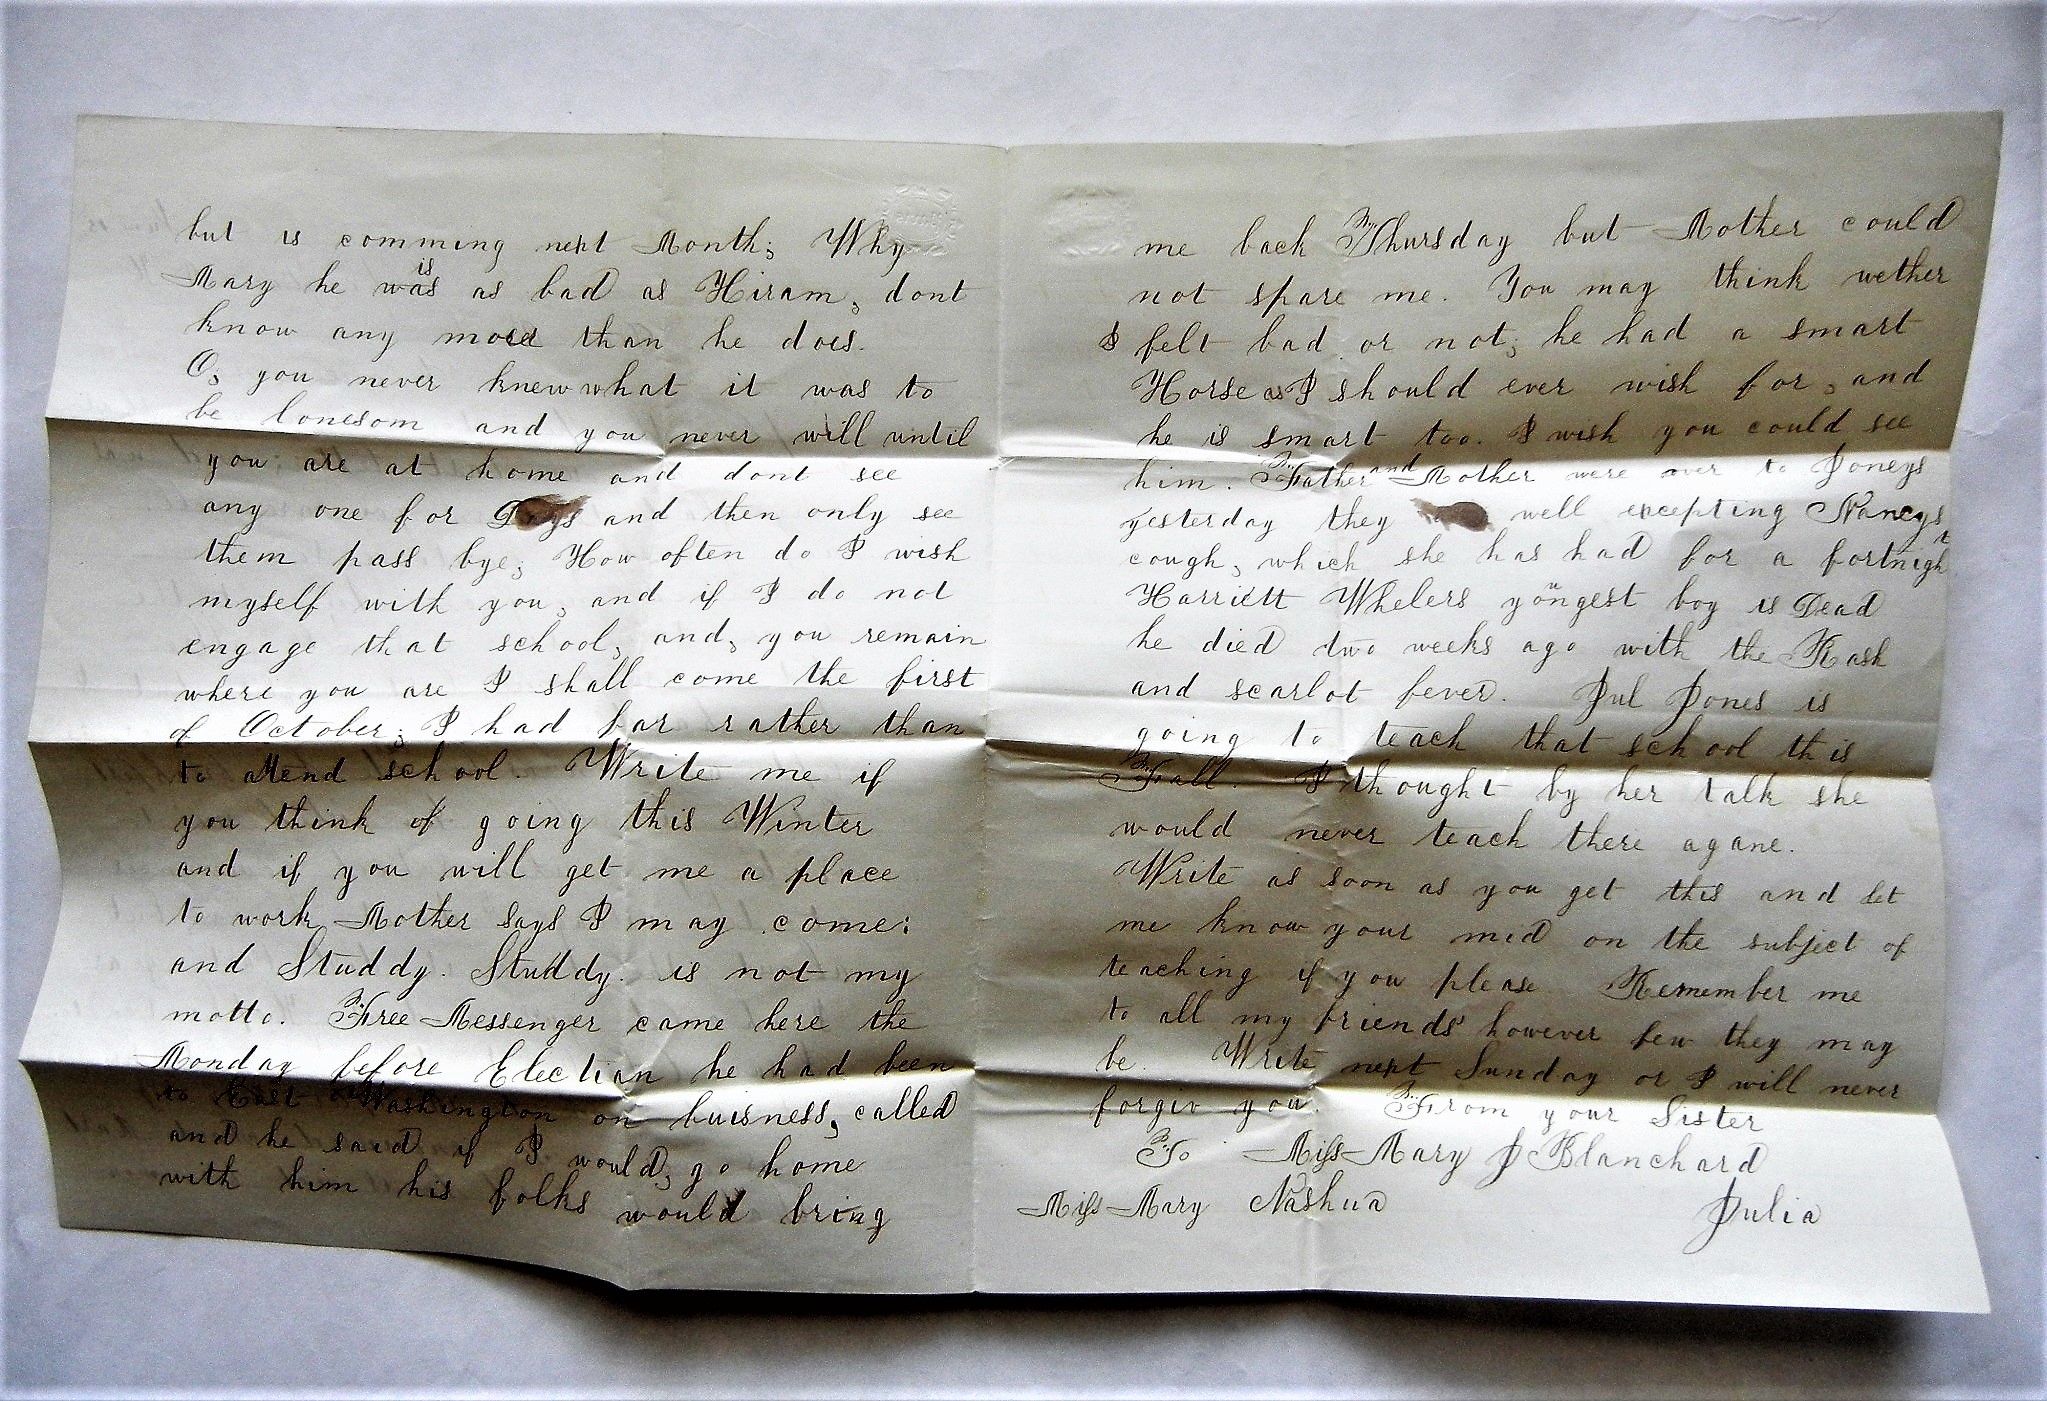 but is comming next Month; Why
Mary he is as bad as Hiram, dont
know any more than he does.
O, you never knew what it was to
be lonesom and you never will until
you are at home and dont see
any one for Days and then only see
them pass bye; How often do I wish
myself with you, and if I do not
engage that school, and, you remain
where you are I shall come the first
of October; I had far rather than
to attend school. Write me if
you think of going this Winter
and if you will get me a place
to work Mother says I may come:
and Studdy. Studdy. is not my
motto. Free Messenger came here the
Monday before Election he had been
to East Washington on buisness, called
and he said if I would, go home
with him his folks would bring
me back Thursday but Mother could
not spare me. You may think wether
I felt bad or not; he had a smart
Horse as I should ever wish for, and
he is smart too. I wish you could see
him. Father and Mother were over to Joneys
yesterday they well excepting Nancys
cough, which she has had for a fortnight
Harriett Whelers youngest boy is Dead
he died two weeks ago with the Rash
and scarlot fever. Jul Jones is
going to teach that school this
Fall. I thought by her talk she
would never teach there agane.
Write as soon as you get this and let
me know your mid on the subject of
teaching if you please Remember me
to all my friends however few they may
be. Write next Sunday or I will never
forgiv you. From your Sister
To Miss Mary J Blanchard
Miss Mary Nashua
Julia